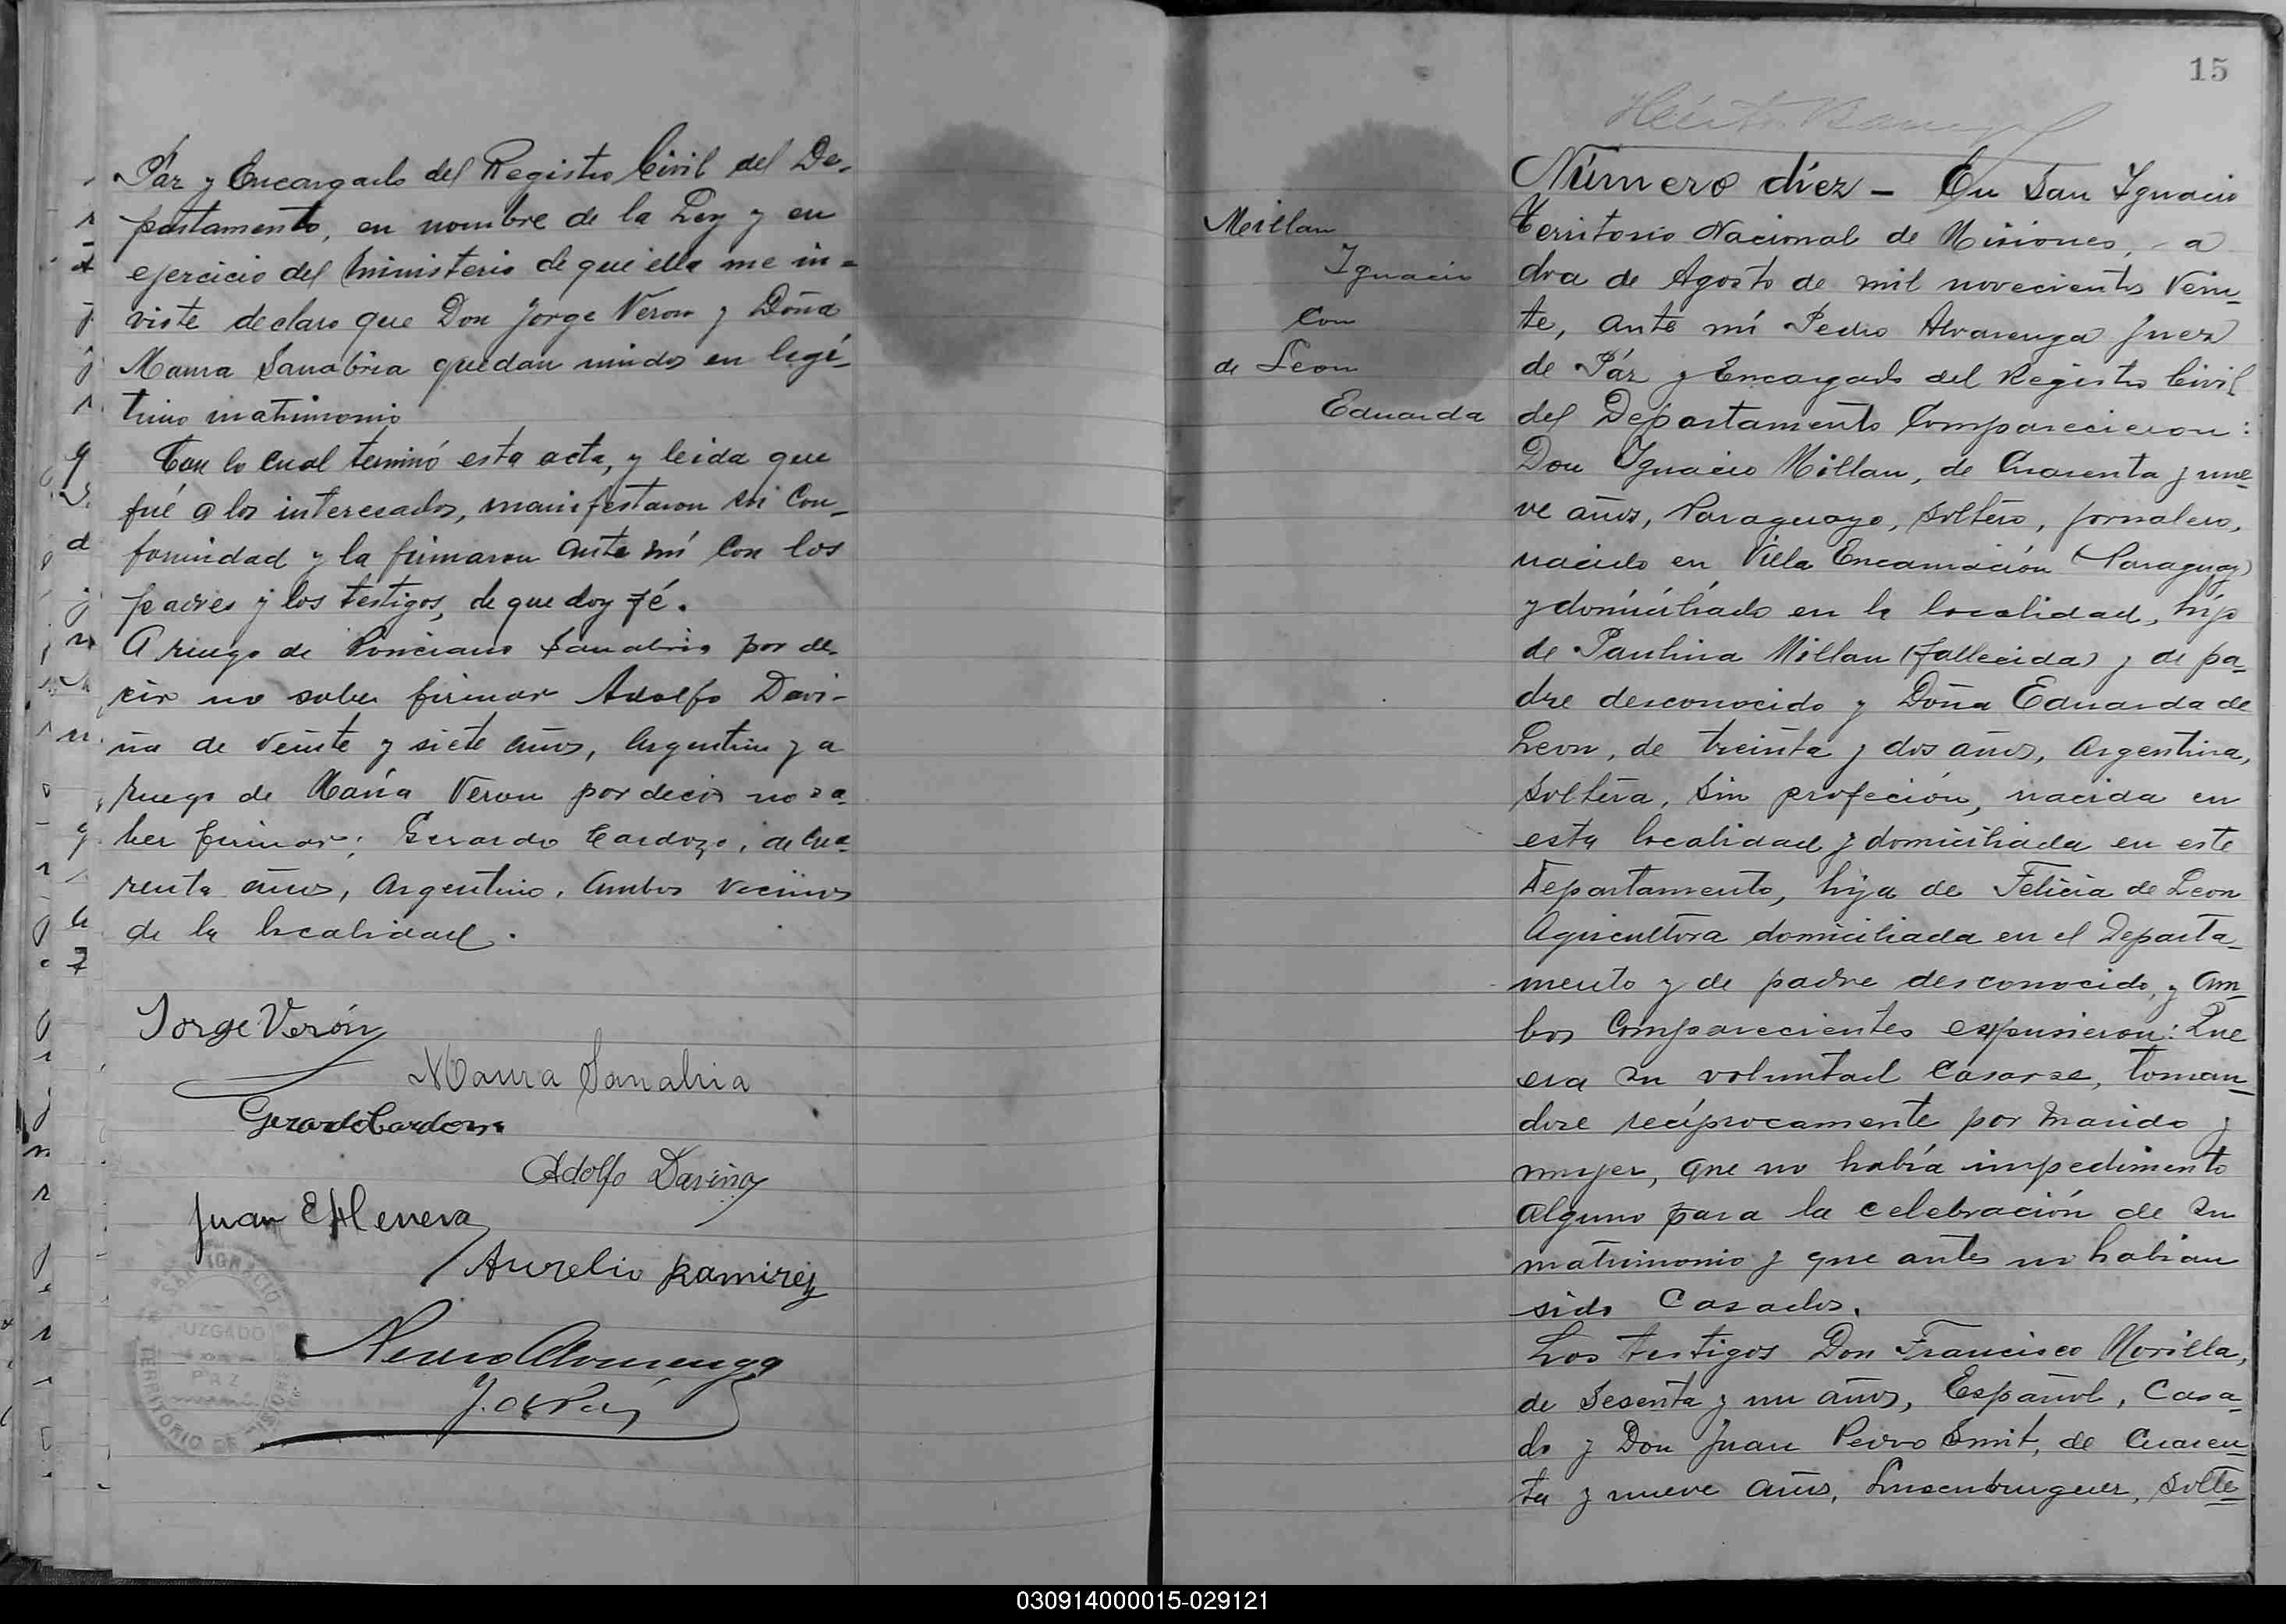 Páz y Encargado del Registro Civil del De-
partamento, en nombre de la Ley y en
ejercicio del ministerio de que ella me in-
viste declaro que Don Jorge Veron y Doña
Maura Sanabria quedan unidos en legí-
timo matrimonio
Con lo cual terminó esta acta, y leida que
fué a los interesados, manifestaron su Con-
formidad y la firmaron ante mí Con los
padres y los testigos, de que doy fé.
A ruego de Ponciano Sanabria por de-
cir no saber firmar Adolfo Davi-
ña de veinte y siete años, Argentino y a
ruego de María Veron por decir no sa-
ber firmar; Gerardo Cardozo, de Cua-
renta años, Argentino, Ambos vecinos
de la localidad.
Jorge Verón
Maura Sanabria
Gerardo Cardozo
Adolfo Daviña
Juan Herrera
Aurelio Ramirez
Pedro Alvarenga
J. de Paz
SAN IGNACIO
JUZGADO
PAZ
TERRITORIO DE MISIONES
15
Millan
Ignacio
Con
de Leon
Eduarda
Número diez - En San Ignacio
Territorio Nacional de Misiones, a
dos de Agosto de mil novecientos Vein-
te, ante mí Pedro Alvarenga Juez
de Páz y Encargado del Registro Civil
del Departamento Comparecieron:
Don Ignacio Millan, de Cuarenta y nue-
ve años, Paraguayo, soltero, jornalero,
nacido en Villa Encarnación (Paraguay)
y domiciliado en la localidad, hijo
de Paulina Millan (fallecida) y de pa-
dre desconocido y Doña Eduarda de
Leon, de treinta y dos años, Argentina,
Soltera, Sin profeción, nacida en
esta localidad y domiciliada en este
Departamento, hija de Felicia de Leon
Agricultora domiciliada en el Departa-
mento y de padre desconocido, y am-
bos Comparecientes expusieron: Que
era su voluntad Casarse, toman-
dose recíprocamente por marido y
mujer, que no había impedimento
alguno para la celebración de su
matrimonio y que antes no habian
sido Casados.
Los testigos Don Francisco Morilla,
de Sesenta y un años, Español, Casa-
do y Don Juan Pedro Smit, de Cuaren-
ta y nueve años, Luxenburguer, Solte-
030914000015-029121